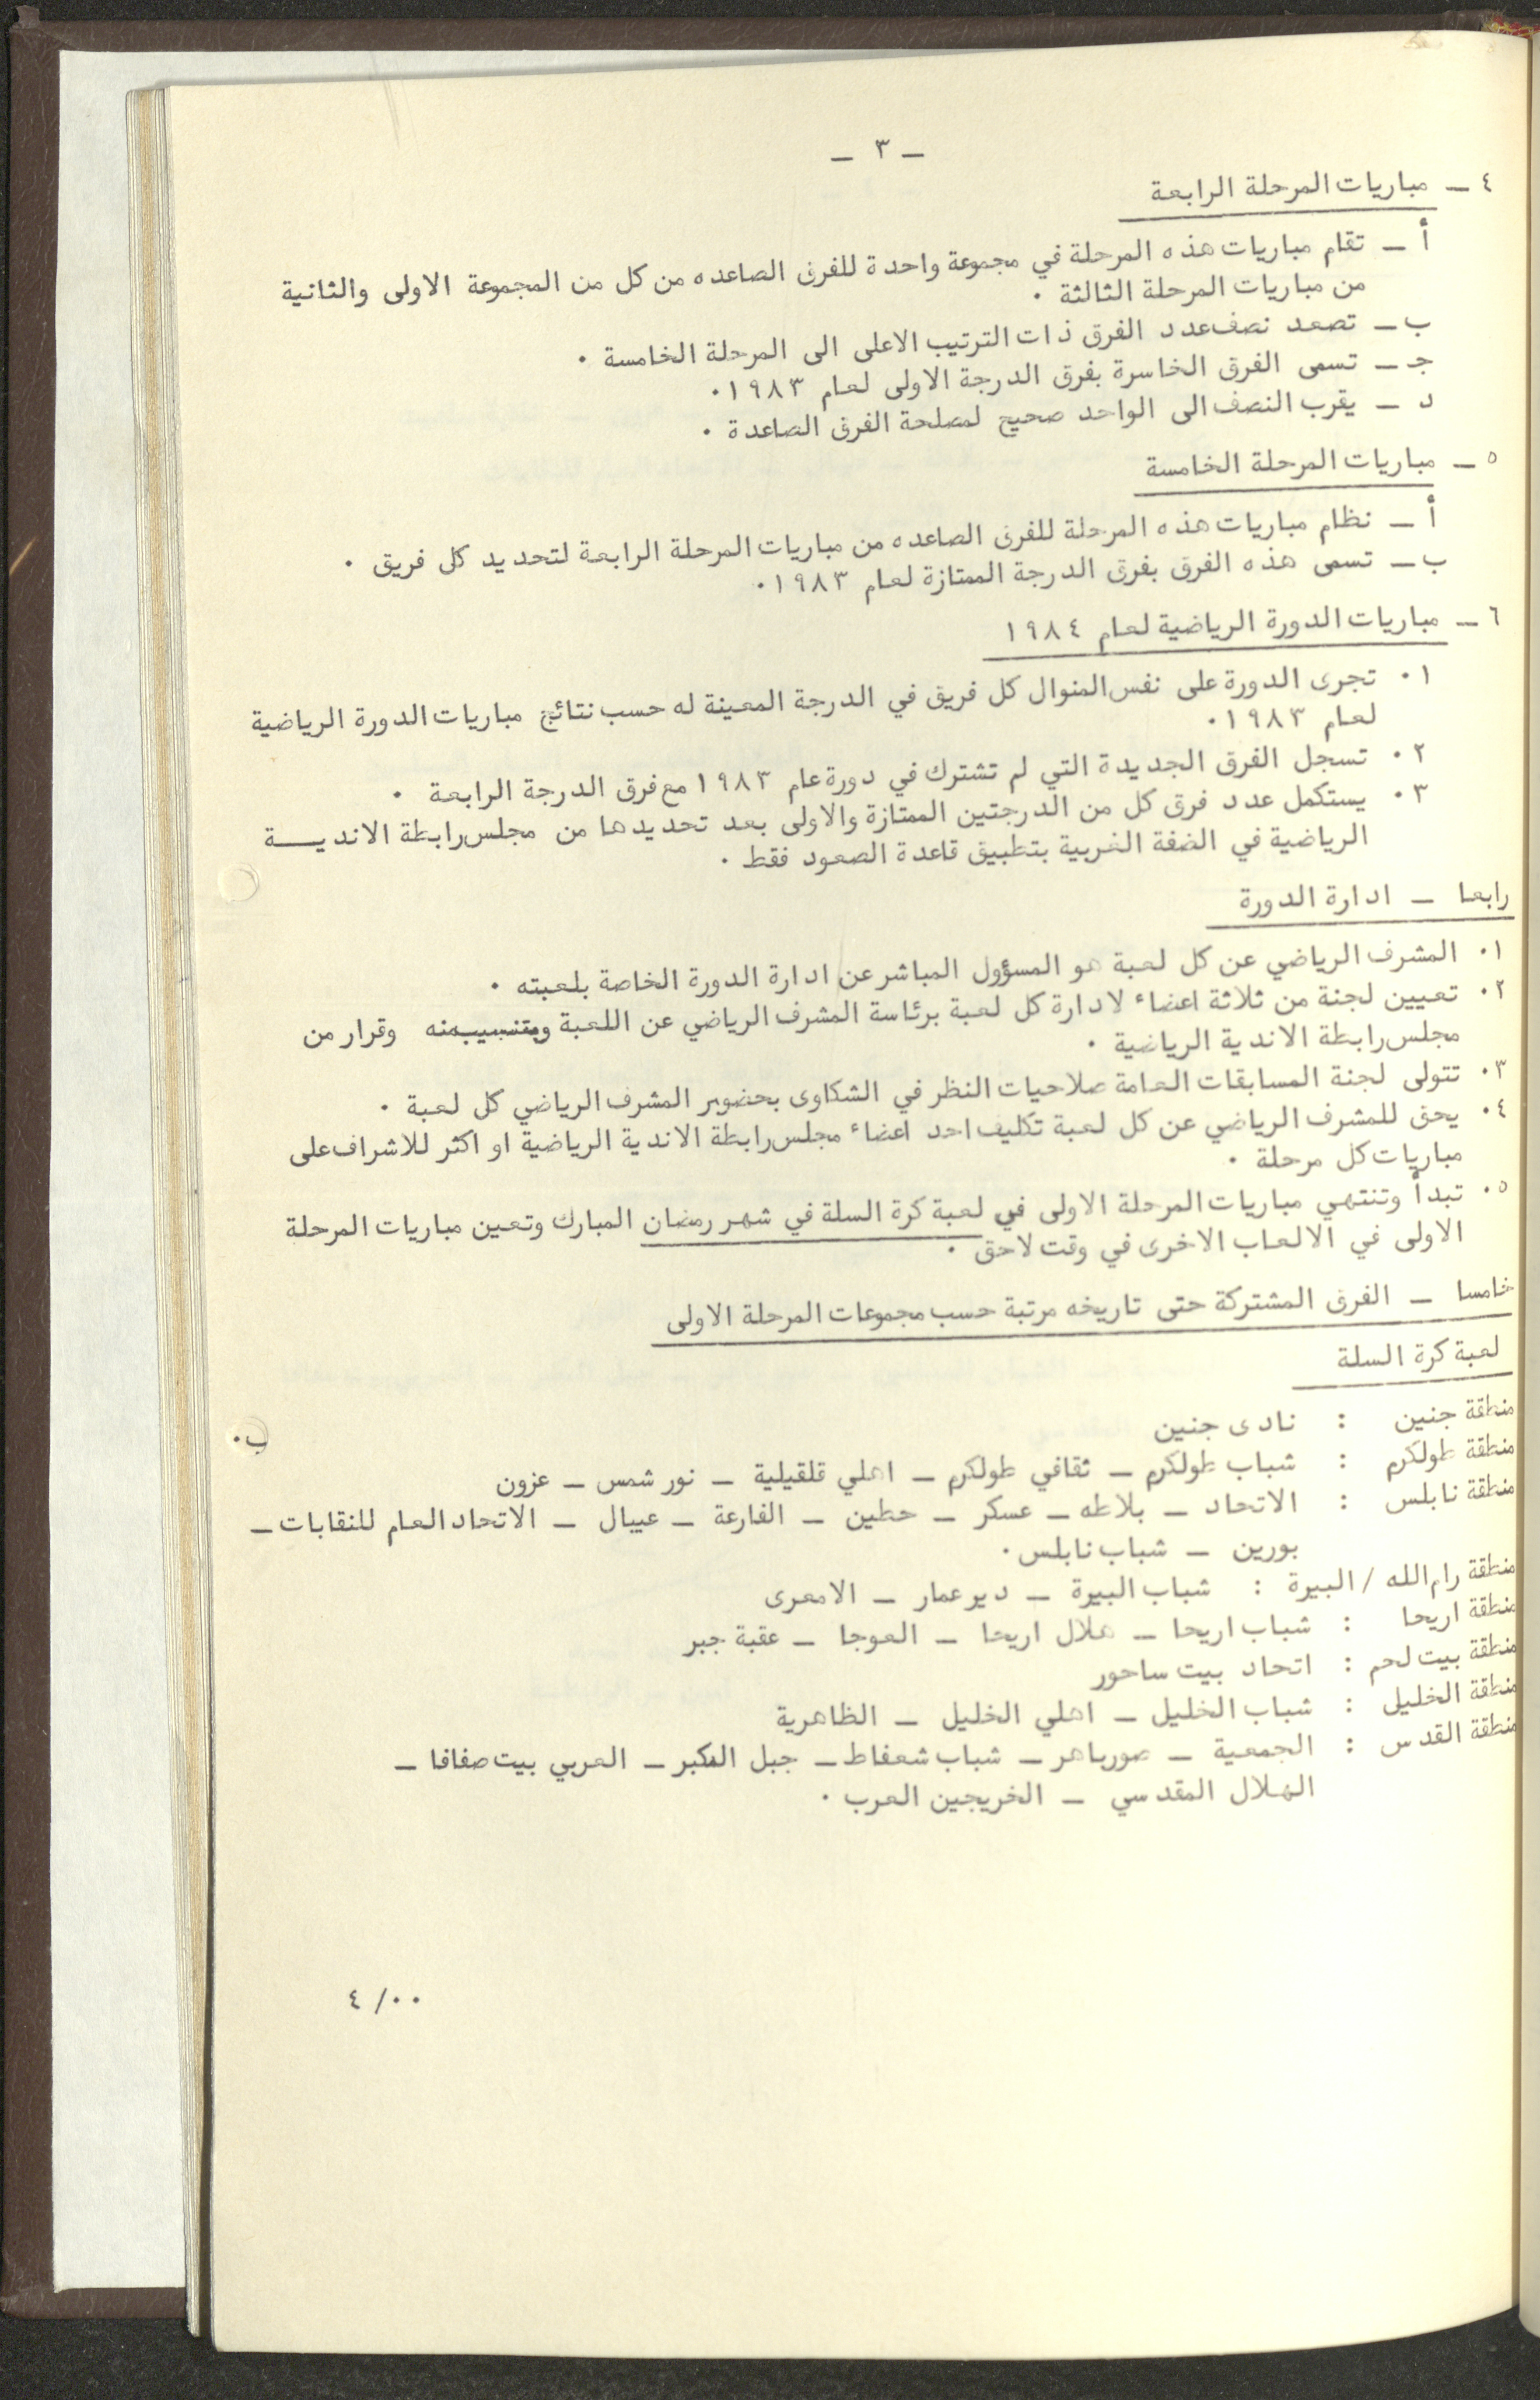 — ٣ —
٤ — مباريات المرحلة الرابعة
أ — تقام مباريات هذه المرحلة في مجموعة واحدة للفرق الصاعده من كل من المجموعة الاولى والثانية
من مباريات المرحلة الثالثة ٠
ب — تصعد نصف عدد الفرق ذات الترتيب الاعلى الى المرحلة الخامسة ٠
جـ — تسمى الفرق الخاسرة بفرق الدرجة الاولى لعام ١٩٨٣ ٠
د — يقرب النصف الى الواحد صحيح لمصلحة الفرق الصاعدة ٠
٥ — مباريات المرحلة الخامسة
أ — نظام مباريات هذه المرحلة للفرق الصاعده من مباريات المرحلة الرابعة لتحديد كل فريق ٠
ب — تسمى هذه الفرق بفرق الدرجة الممتازة لعام ١٩٨٣ ٠
٦ — مباريات الدورة الرياضية لعام ١٩٨٤
١ ٠ تجرى الدورة على نفس المنوال كل فريق في الدرجة المعينة له حسب نتائج مباريات الدورة الرياضية
لعام ١٩٨٣ ٠
٢ ٠ تسجل الفرق الجديدة التي لم تشترك في دورة عام ١٩٨٣ مع فرق الدرجة الرابعة ٠
٣ ٠ يستكمل عدد فرق كل من الدرجتين الممتازة والاولى بعد تحديدها من مجلس رابطة الانديـــة
الرياضية في الضفة الغربية بتطبيق قاعدة الصعود فقط ٠
رابعا — ادارة الدورة
١ ٠ المشرف الرياضي عن كل لعبة هو المسؤول المباشر عن ادارة الدورة الخاصة بلعبته ٠
٢ ٠ تعيين لجنة من ثلاثة اعضاء لادارة كل لعبة برئاسة المشرف الرياضي عن اللعبة وبتنسيب منه وقرار من
مجلس رابطة الاندية الرياضية ٠
٣ ٠ تتولى لجنة المسابقات العامة صلاحيات النظر في الشكاوى بحضور المشرف الرياضي كل لعبة ٠
٤ ٠ يحق للمشرف الرياضي عن كل لعبة تكليف احد اعضاء مجلس رابطة الاندية الرياضية او اكثر للاشراف على
مباريات كل مرحلة ٠
٥ ٠ تبدأ وتنتهي مباريات المرحلة الاولى في لعبة كرة السلة في شهر رمضان المبارك وتعين مباريات المرحلة
الاولى في الالعاب الاخرى في وقت لاحق ٠
خامسا — الفرق المشتركة حتى تاريخه مرتبة حسب مجموعات المرحلة الاولى
لعبة كرة السلة
منطقة جنين : نادى جنين
ب ٠
منطقة طولكرم : شباب طولكرم — ثقافي طولكرم — اهلي قلقيلية — نور شمس — عزون
منطقة نابلس : الاتحاد — بلاطه — عسكر — حطين — الفارعة — عيبال — الاتحاد العام للنقابات —
بورين — شباب نابلس ٠
منطقة رام الله / البيرة : شباب البيرة — دير عمار — الامعرى
منطقة اريحا : شباب اريحا — هلال اريحا — العوجا — عقبة جبر
منطقة بيت لحم : اتحاد بيت ساحور
منطقة الخليل : شباب الخليل — اهلي الخليل — الظاهرية
منطقة القدس : الجمعية — صورباهر — شباب شعفاط — جبل المكبر — العربي بيت صفافا —
الهلال المقدسي — الخريجين العرب ٠
٤ / ٠ ٠